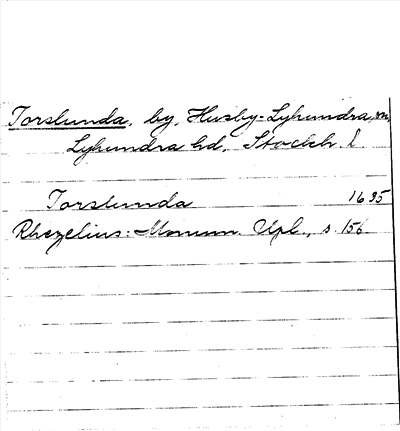 Torslunda, by, Husby-Lyhundra, sn,
Lyhundra hd, Stockh. l
Torslunda 1635
Rhezelius: Monum. Upl., s. 156